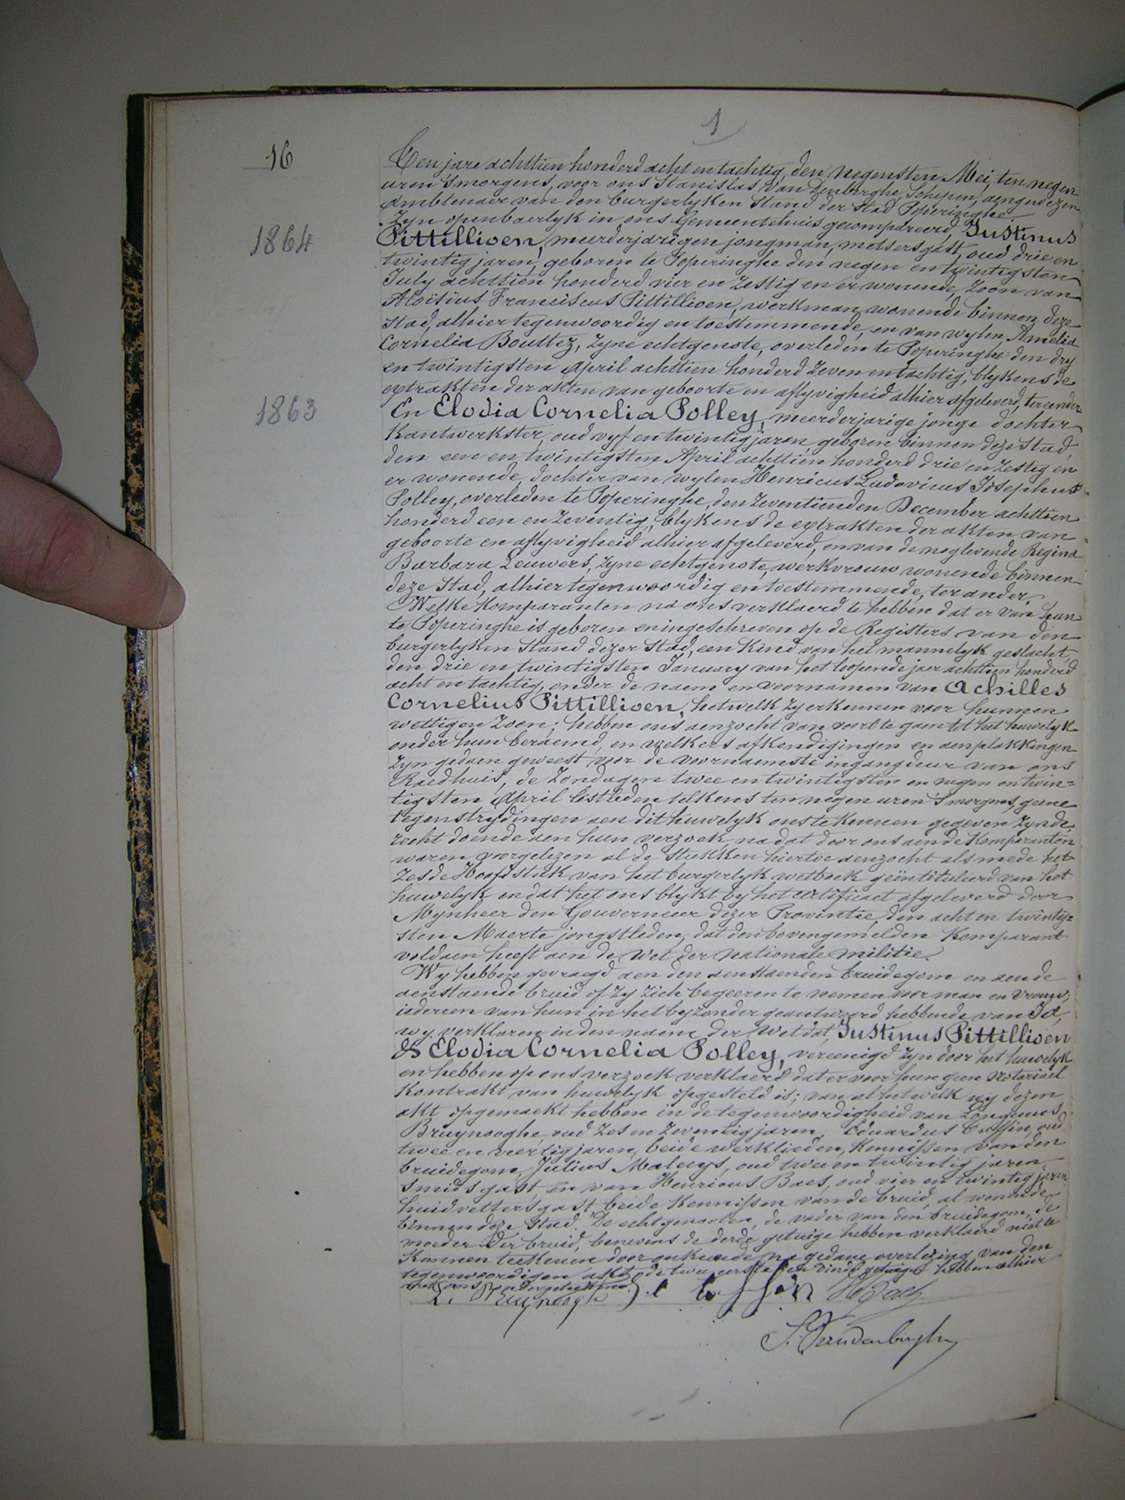 1
16
Ten jare achttien honderd acht en tachtig, den negensten Mei, ten negen
uren 's morgens, voor ons Stanislas Van Schepen, aengewezen
Ambtenaer van den burgerlyken Stand der Stad Poperinghe
Zyn openbaerlyk in ons Gemeentehuis gecompareerd, Justinus
1864
Pittillioen, meerderjarigen jongman, metsersgast, oud drie en
twintig jaren, geboren te Poperinghe den negen en twintigsten
July achttien honderd vier en zestig en er wonende, Zoon van
Aloisius Franciscus Pittillioen, werkman, wonende binnen deze
Stad, alhier tegenwoordig en toestemmende, en van wylen Amelia
Cornelia Bouttez, zyne echtgenote, overleden te Poperinghe den dry
en twintigsten April achttien honderd zeven en tachtig, blykens de
extrakten der akten van geboorte en aflyvigheid alhier afgeleverd, ter eender
1863
En Elodia Cornelia Polley, meerderjarige jonge dochter
Kantwerkster, oud vyf en twintig jaren, geboren binnen deze Stad,
den een en twintigsten April achttien honderd drie en zestig en
er wonende, dochter van wylen Henricus Ludovicus Josephus
Polley, overleden te Poperinghe, den zeventienden December achttien
honderd een en zeventig, blykens de extrakten der akten van
geboorte en aflyvigheid alhier afgeleverd, en van de nog levende Regina
Barbara Leuwers, zyne echtgenote, werkvrouw wonende binnen
deze Stad, alhier tegenwoordig en toestemmende, ter ander.
Welke Komparanten na ons verklaerd te hebben dat er van hun
te Poperinghe is geboren en ingeschreven op de Registers van den
burgerlyken Stand dezer Stad, een Kind van het mannelyk geslacht,
den drie en twintigsten January van het loopende jaer achttien honderd
acht en tachtig, onder de naem en voornamen van Achilles
Cornelius Pittillioen, hetwelk zy erkennen voor hunnen
wettigen Zoon; hebben ons aenzocht van voort te gaen tot het huwelyk
onder hun beraemd, en welkers afkondigingen en aenplakkingen
Zyn gedaen geweest voor de voornaemste ingangdeur van ons
Raedhuis, de Zondagen twee en twintigsten en negen en twin=
tigsten April lestleden telkens ten negen uren 's morgens, geene
tegenstrydingen aen dit huwelyk ons te kennen gegeven zynde,
recht doende aen hun verzoek, na dat door ons aen de Komparanten
waren voorgelezen al de stukken hiertoe aenzocht alsmede het
zesde Hoofdstuk van het burgerlyk wetboek geïntituleerd van het
huwelyk en dat het ons blykt by het certificaet afgeleverd door
Mynheer den Gouverneur dezer Provintie, den acht en twintig=
sten Maerte jongstleden, dat den bovengemelden Komparant
voldaen heeft aen de Wet der nationale militie.
Wy hebben gevraegd aen den aenstaenden bruidegom en aen de
aenstaende bruid of zy zich begeeren te nemen voor man en vrouw,
iedereen van hun in het byzonder geantwoord hebbende van Ja,
wy verklaren in den naem der Wet dat, Justinus Pittillioen
& Elodia Cornelia Polley, vereenigd zyn door het huwelyk
en hebben op ons verzoek verklaerd dat er voor hun geen Notariael
Kontrakt van huwelyk opgesteld is; van al hetwelk wy dezen
akt opgemaekt hebben in de tegenwoordigheid van Longinus
Bruynooghe, oud zes en zeventig jaren, Eduardus oud
twee en veertig jaren, beide werklieden, Kennissen van den
bruidegom, Julius Maleys, oud twee en twintig jaren,
Smidsgast en van Henricus Baes, oud vier en twintig jaren
huidvettersgast, beide Kennissen van de bruid, al wonende
binnen deze Stad. De echtgenooten, de vader van den bruidegom, de
moeder der bruid, benevens de derde getuige hebben verklaerd niet te
Konnen teekenen door onkunde, na gedane overlezing van den
tegenwoordigen akt, de twee eerste en vierde getuigen hebben alhier
met ons onderteekend.
L. Bruynooghe H Baes
S. Vandenberghe